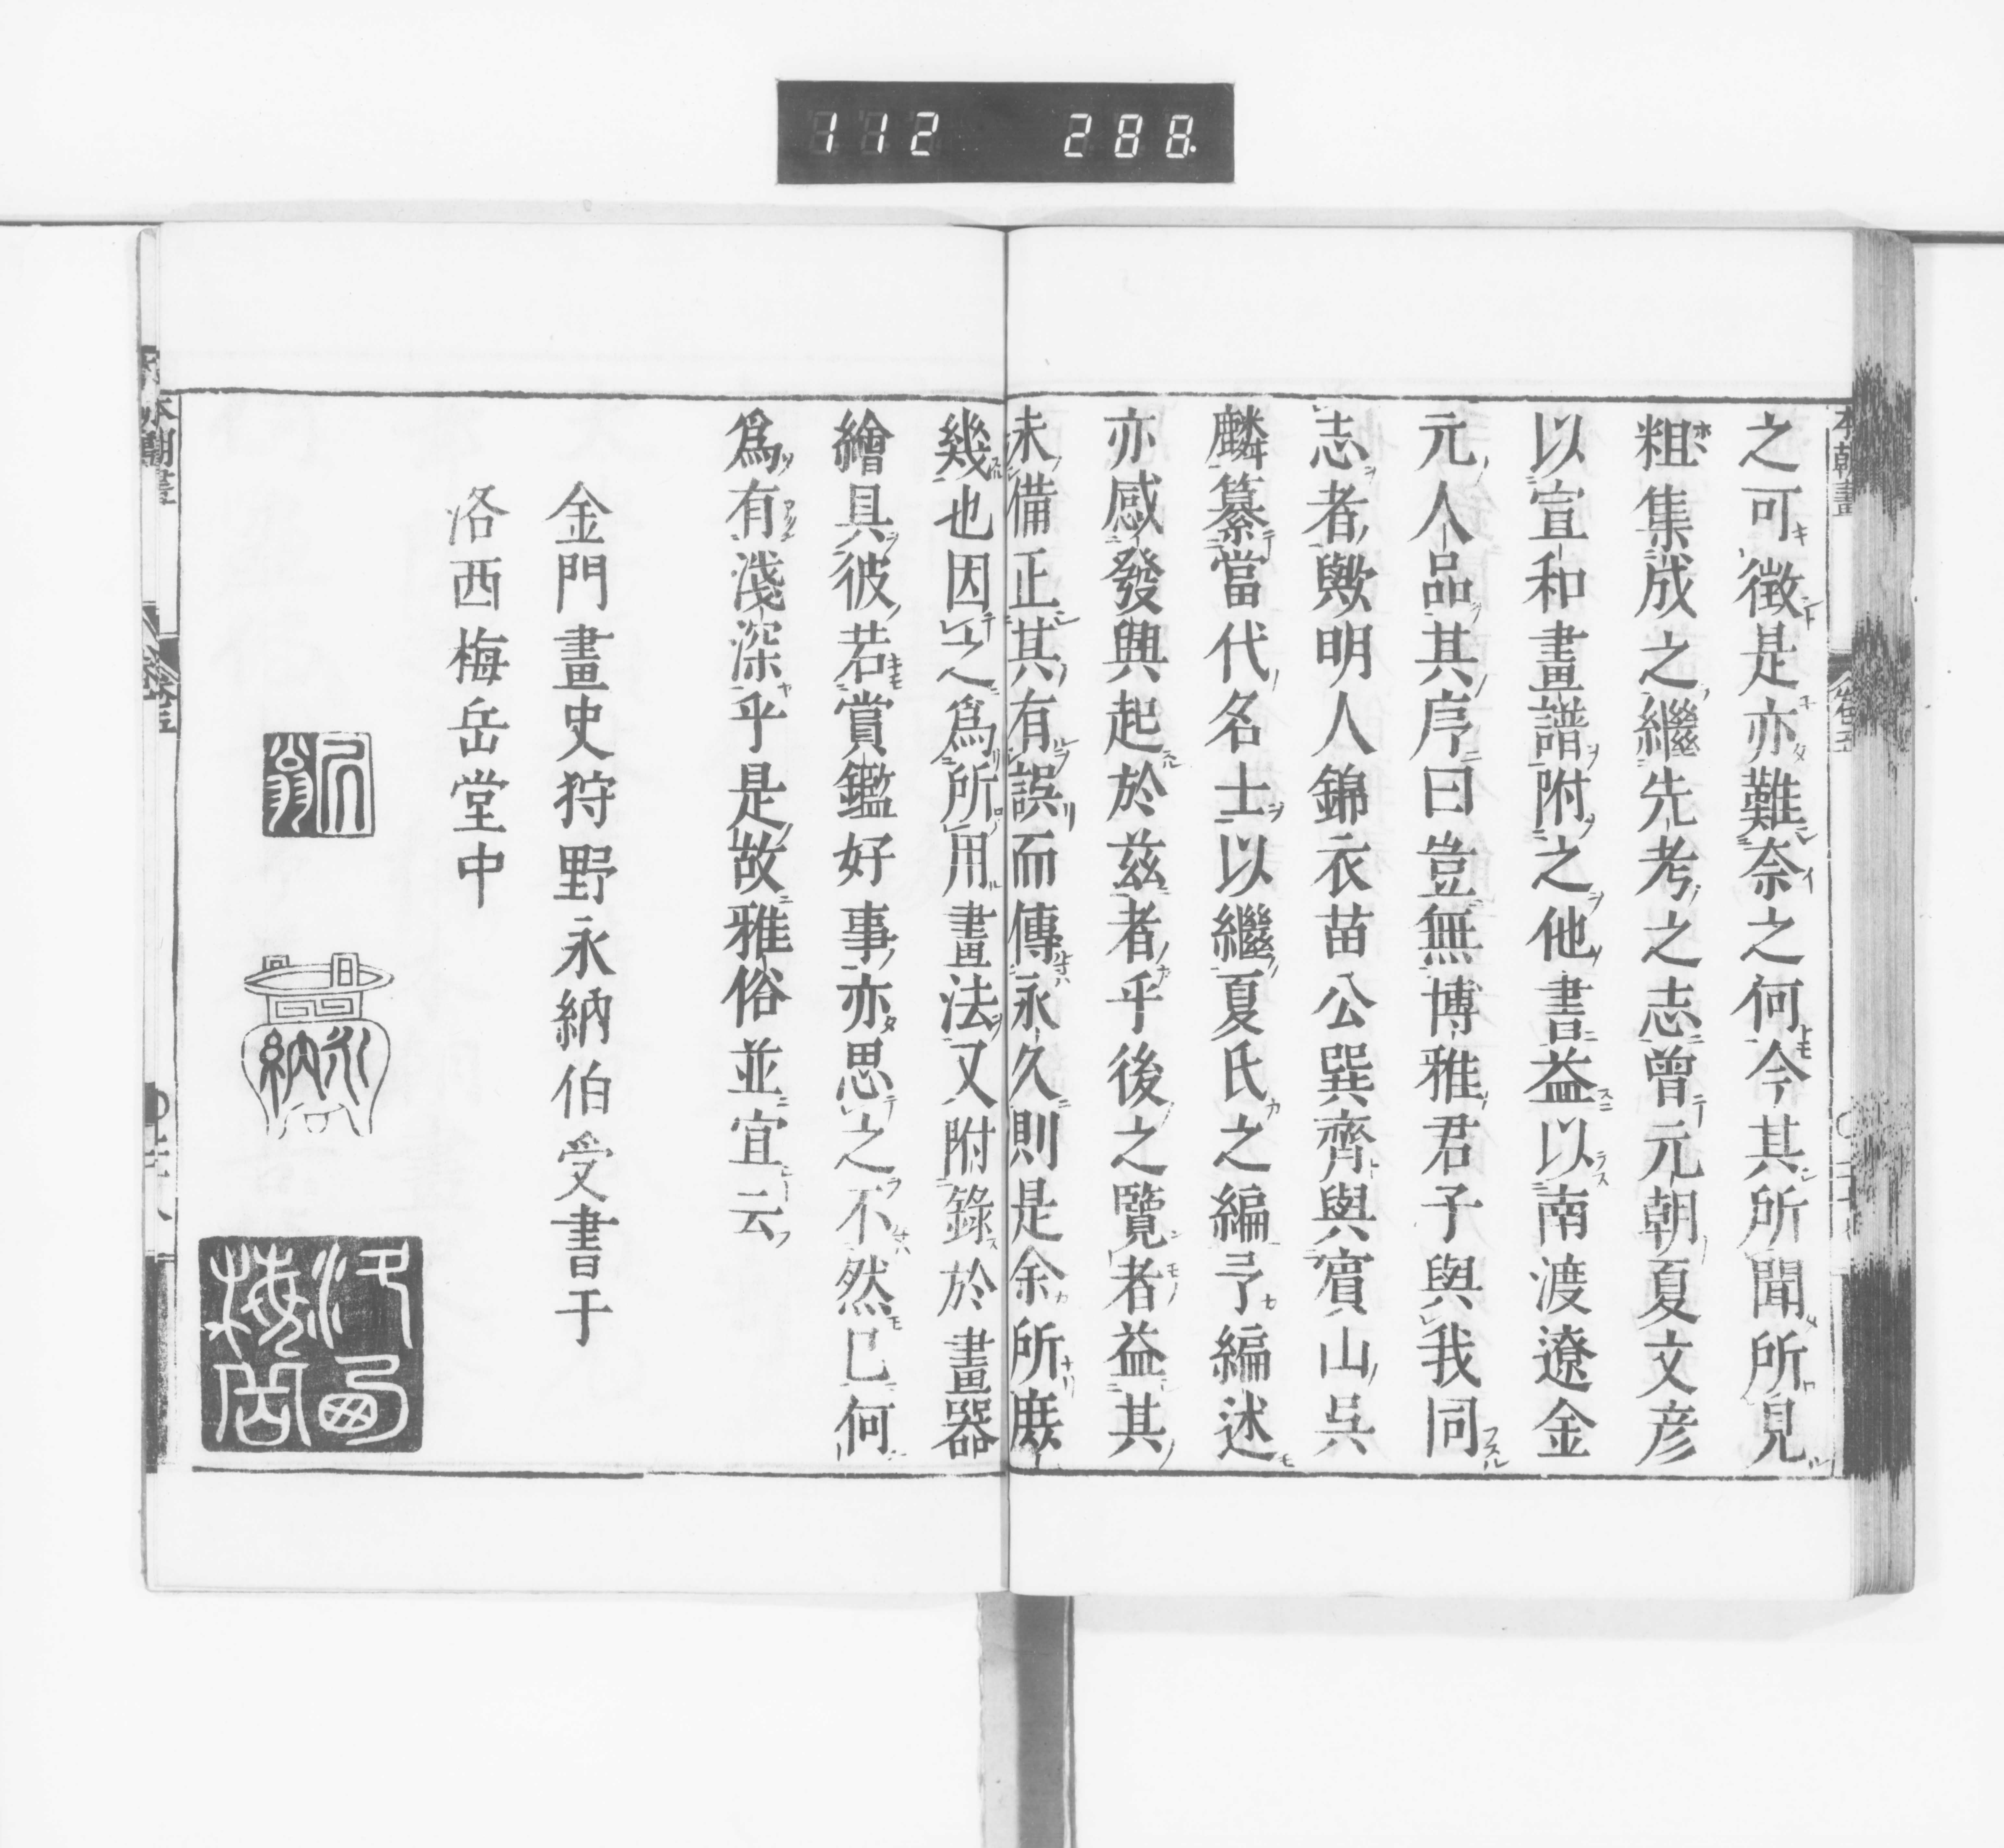 112 288
之可徵是亦難奈之何今其所聞所見
粗集成之繼先考之志曾元朝夏文彦
以宣和畫譜附之他書益以南渡遼金
元人品其序曰豈無博雅君子與我同
志者歟明人錦衣苗公巽齊與賓山呉
麟纂當代名士以繼夏氏之編予編述
亦感發興起於兹者乎後之覽者益其
未備正其有誤而傳永久則是余所庶
幾也因工之爲所用畫法又附錄於畫器
繪具彼若賞鑑好事亦思之不然已何
爲有淺深乎是故雅俗並宜云
金門畫史狩野永納伯受書于
洛西梅岳堂中
永納